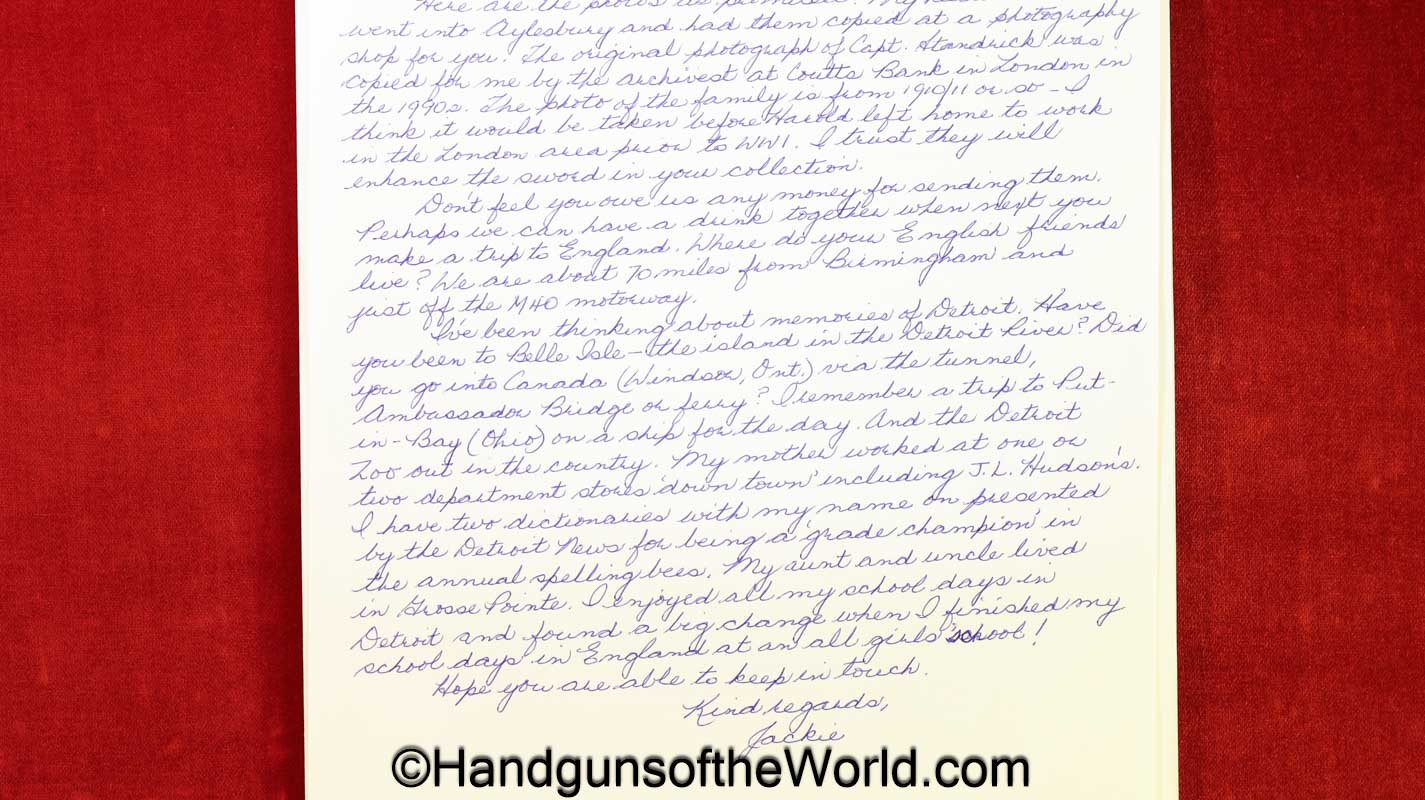 Here are the photos as promised. My
went into Aylesbury and had them copied at a photography
shop for you! The original photograph of Capt. Standrick was
copied for me by the archivest at Coutts Bank in London in
the 1990s. The photo of the family is from 1910/11 or so - I
think it would be taken before Harold left home to work
in the London area prior to WW1. I trust they will
enhance the sword in your collection.
Don't feel you owe us any money for sending them.
Perhaps we can have a drink together when next you
make a trip to England. Where do your English friends
live? We are about 70 miles from Birmingham and
just off the M40 motorway.
I've been thinking about memories of Detroit. Have
you been to Belle Isle - the island in the Detroit River? Did
you go into Canada (Windsor, Ont.) via the tunnel,
Ambassador Bridge or ferry? I remember a trip to Put-
in-Bay (Ohio) on a ship for the day. And the Detroit
Zoo out in the country. My mother worked at one or
two department stores 'down town' including J.L. Hudson's.
I have two dictionaries with my name on presented
by the Detroit News for being a 'grade champion' in
the annual spelling bees. My aunt and uncle lived
in Grosse Pointe. I enjoyed all my school days in
Detroit and found a big change when I finished my
school days in England at an all girls' school!
Hope you are able to keep in touch.
Kind regards,
Jackie
©HandgunsoftheWorld.com